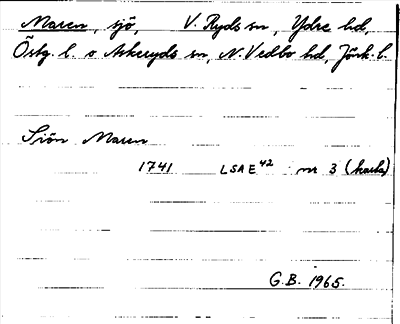 Maren, sjö, V. Ryds sn, Ydre hd,
Östg. l. o Askeryds sn, N. Vedbo hd, Jönk. l.
Siön Maren
1741 LSA E 42 nr 3 (karta)
G.B. 1965.